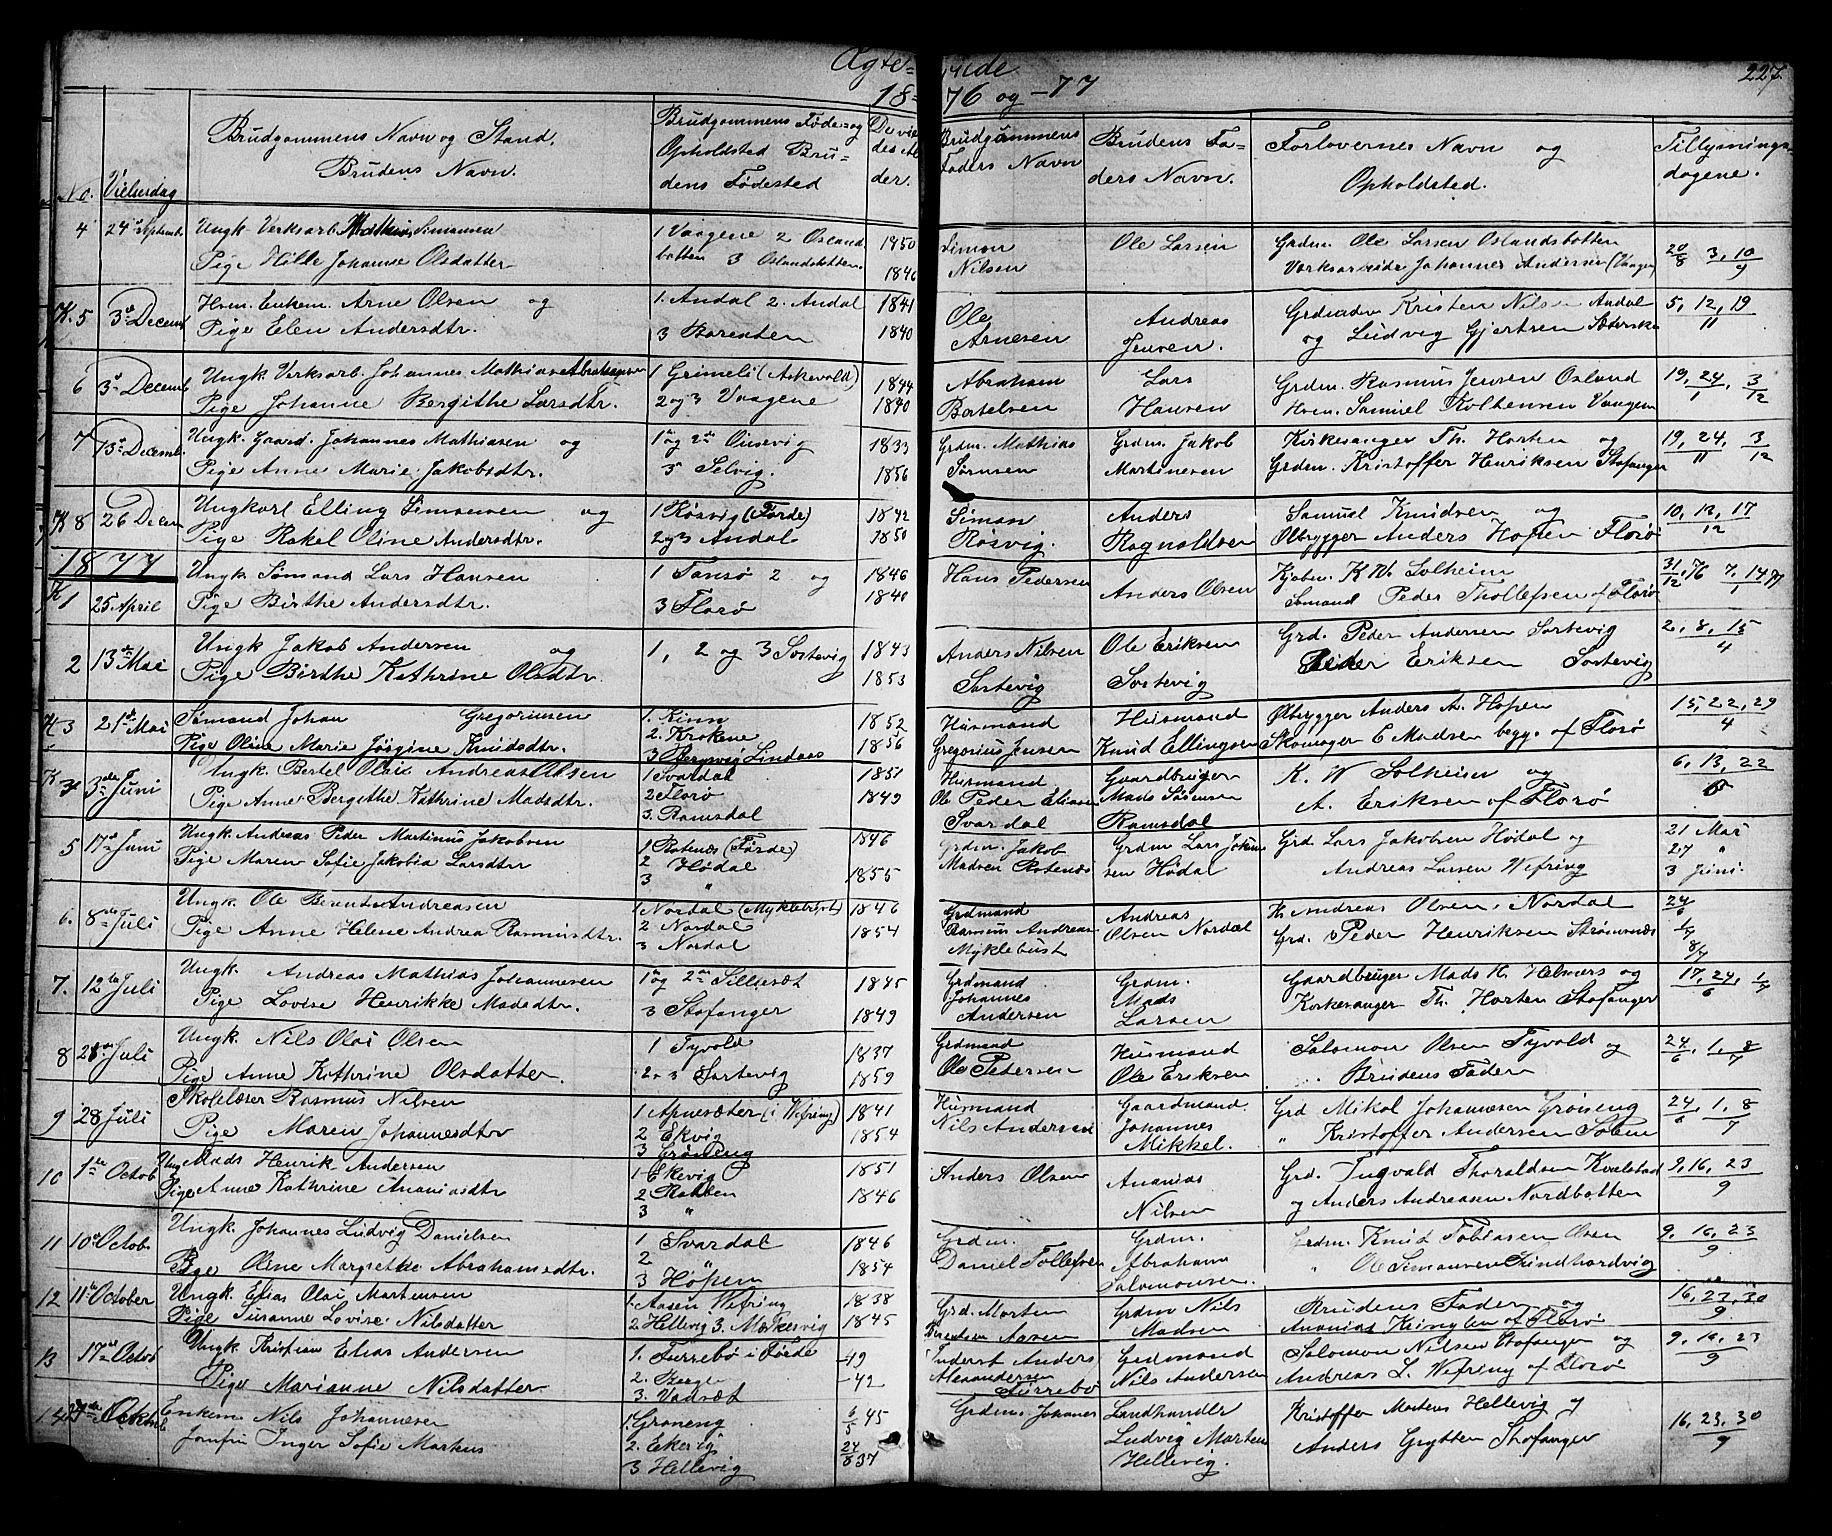 Ægte- viede 227.
18- 76 og -77
No. Vielsesdag Brudgommens Navn og Stand. Brudens Navn. Brudgommens Føde- og Opholdsted Brudens Fødested De viedes Alder. Brudgommens Faders Navn Brudens Faders Navn. Forlovernes Navn og Opholdsted. Tillysningsdagene.
4 24 Septemb. Ungk. Verksarb. Mathias Simonsen 1 Vaagene 2 Osland 1850 Simon Ole Larsen Grdm. Ole Larsen Oslandsbotten 20/8 3, 10
Pige Hille Johanne Olsdatter botten 3 Oslandsbotten 1846 Nilsen Verksarbeider Johannes Andersen (Vaagen) 9
K. 5 3 Decemb Hsm. Enkem. Arne Olsen og 1. Andal 2. Andal 1841 Ole Andreas Grdmden Kristen Nilsen Andal 5, 12, 19
Pige Elen Andersdtr. 3 Barenten 1840 Arnesen Jensen. og Ludvig Gjertsen 11
6 3 Decemb Ungk. Verksarb. Johannes Mathias Abrahamsen 1 Grimeli (Askevold) 1844 Abraham Lars Grdm. Rasmus Jensen Osland 19, 24, 3
Pige Johanne Bergithe Larsdtr. 2 og 3 Vaagene 1840 Batelsen Hansen Hsm. Samuel Kolbensen Vaagene 1 12
7 13 Decemb. Ungk. Gaard. Johannes Mathiasen og 1 og 2 Ousevig 1833 Grdm. Mathias Grdm. Jakob Kirkesanger Th. Horten og 19, 24, 3
Pige Anne Marie Jakobsdtr. 3 Selvig. 1856 Sørnsen Martinesen Grdm. Kristoffer Henriksen Stafanger 11 12
K 8 26 Decem Ungkarl Elling Simonsen og 1 Røsvig (Førde) 1842 Simon Anders Samuel Knudsen og 10, 12, 17
Pige Rakel Oline Andersdtr. 2 og 3 Andal 1850 Røsvig. Ragnaldsen Ølbrygger Anders Hopen Florø 12
1877
K 1 25 April Ungk. Sømand Lars Hansen 1 Tansø 2 og 1846 Hans Pedersen Anders Olsen Kjøbm. K. W. Solheim 31/12 76 7, 14, 77
Pige Birthe Andersdtr. 3 Florø 1840 Sømand Peder Thollefsen af Florø 1
2 13 Mai Ungk Jakob Andersen og 1, 2 og 3 Sortevig 1843 Anders Nilsen Ole Eriksen Grd. Peder Andersen Sortevig 2, 8, 15
Pige Birthe Kathrine Olsdtr. 1853 Sortevig Sortevig Peder Eriksen Sortevig 4
K 3 21 Mai Sømand Johan Gregoriusen 1. Kinn 1852 Husmand Husmand Ølbrygger Anders A. Hopen 15, 22, 29
Pige Oline Marie Jørgine Knudsdtr. 2. Krokene 1856 Gregorius Jensen Knud Ellingsen Skomager E Madsen begg. af Florø 4
3 Bergsvig Lindaas
K 4 3 Juni Ungk. Bertel Olai Andreas Olsen 1 Svardal 1851 Husmand Gaardbruger K. W Solheim og 6, 13, 22
Pige Anne Bergithe Kathrine Madsdtr. 2 Florø 1849 Ole Peder Eliasen Mads Sørensen A. Eriksen af Florø
3. Ramsdal Svardal Ramsdal
5 17 Juni Ungk. Andreas Peder Martinus Jakobsen 1 Rotenæs (Førde) 1846 Grdm. Jakob Grdm Lars Jokum Grd Lars Jakobsen Hødal og 21 Mai
Pige Maren Sofie Jakobia Larsdtr 2 Hødal 1855 Madsen Rotenæs sen Hødal Andreas Larsen Wefring 27 "
3 " 3 Juni.
6. 8 Juli Ungk. Ole Berent Andreasen 1 Nordal (Myklebust) 1846 Grdmand Andreas Andreas Olsen Nordal 24/6
Pige Anne Helene Andrea Rasmusdtr. 2 Nordal 1854 Rasmus Andreas Olsen Nordal Grd. Peder Henriksen Strømsnæs 1/7
3 Nordal Myklebust 8/7
7. 12 Juli Ungk. Andreas Mathias Johannesen 1 og 2 Sillesæt 1845 Grdmand Grdm. Gaardbruger Mads K. Helmers og 17, 24, 1/7
Pige Lovise Henrikke Madsdtr. 3 Stafanger 1849 Johannes Mads Kirkesanger Th. Horten Stafanger 6
Andersen Larsen
8 28 Juli Ungk. Nils Olai Olsen 1 Tyvold 1837 Grdmand Husmand Salomon Olsen Tyvold og 24/6, 1, 8
Pige Anne Kathrine Olsdatter. 2 og 3 Sortevig 1859 Ole Pedersen Ole Eriksen Brudens Fader 7
9 28 Juli Skolelærer Rasmus Nilsen 1 Arnesæter (i Wefring) 1841 Husmand Gaardmand. Grd Mikal Johannesen Grøneng 24/6, 1, 8
Pige Maren Johannesdtr 2 Ekvig 1854 Nils Andersen Johannes " Kristoffer Andersen Solem 7
3 Grøneng Mikkel.
10 1 Octob Ung Mads Henrik Andersen 1 Ekevig 1851 Anders Olsen Ananias Grd. Ingvald Thoraldsen Kvalstad 9, 16, 23
Pige Anne Kathrine Ananiasdtr 2 Rabben 1846 Nilsen og Anders Andreasen Nordbotten 9
3 "
11 10 Octob. Ungk. Johannes Ludvig Danielsen 1 Svardal 1846 Grdm. Grdm. Grdm. Knud Tobiasen Osen 9, 16, 23
Pige Oline Margrethe Abrahamsdtr. 2 " 1854 Daniel Tollefsen Abraham " Ole Simonsen Lindhardvig 9
3 Hopen Salomonsen.
12 11 October Ungk. Elias Olai Martensen 1. Aasen Wefring 1838 Grd. Morten Grdm Nils Brudens Fader og 16, 23, 30
Pige Susanne Lovise Nilsdatter 2 Hellevig 3. Markesvig 1845 Berentsen Aasen Madsen. Ananias Klingben af Florø 9
13 17 Octob Ungk. Kristian Elias Andersen 1. Furrebø i Førde -49 Inderst Anders Grdmand Salomon Nilsen Stafanger og 9, 16, 23
Pige Marianne Nilsdatter 2. -42 Alexandersen Nils Andersen Andreas L. Wefring af Florø 9
3. Vadsæt Furrebø
14 Octob Enkem Nils Johannesen 1. Grøneng 6/5 45 Grdm. Johanes Landhandler Kristoffer Mortens Hellevig og 16, 23, 30
Jomfru Inger Sofie Markus 2. Ekevig 24/8 37 Ludvig Morten Anders Grytten Stafanger 9
3 Hellevig Hellevig.